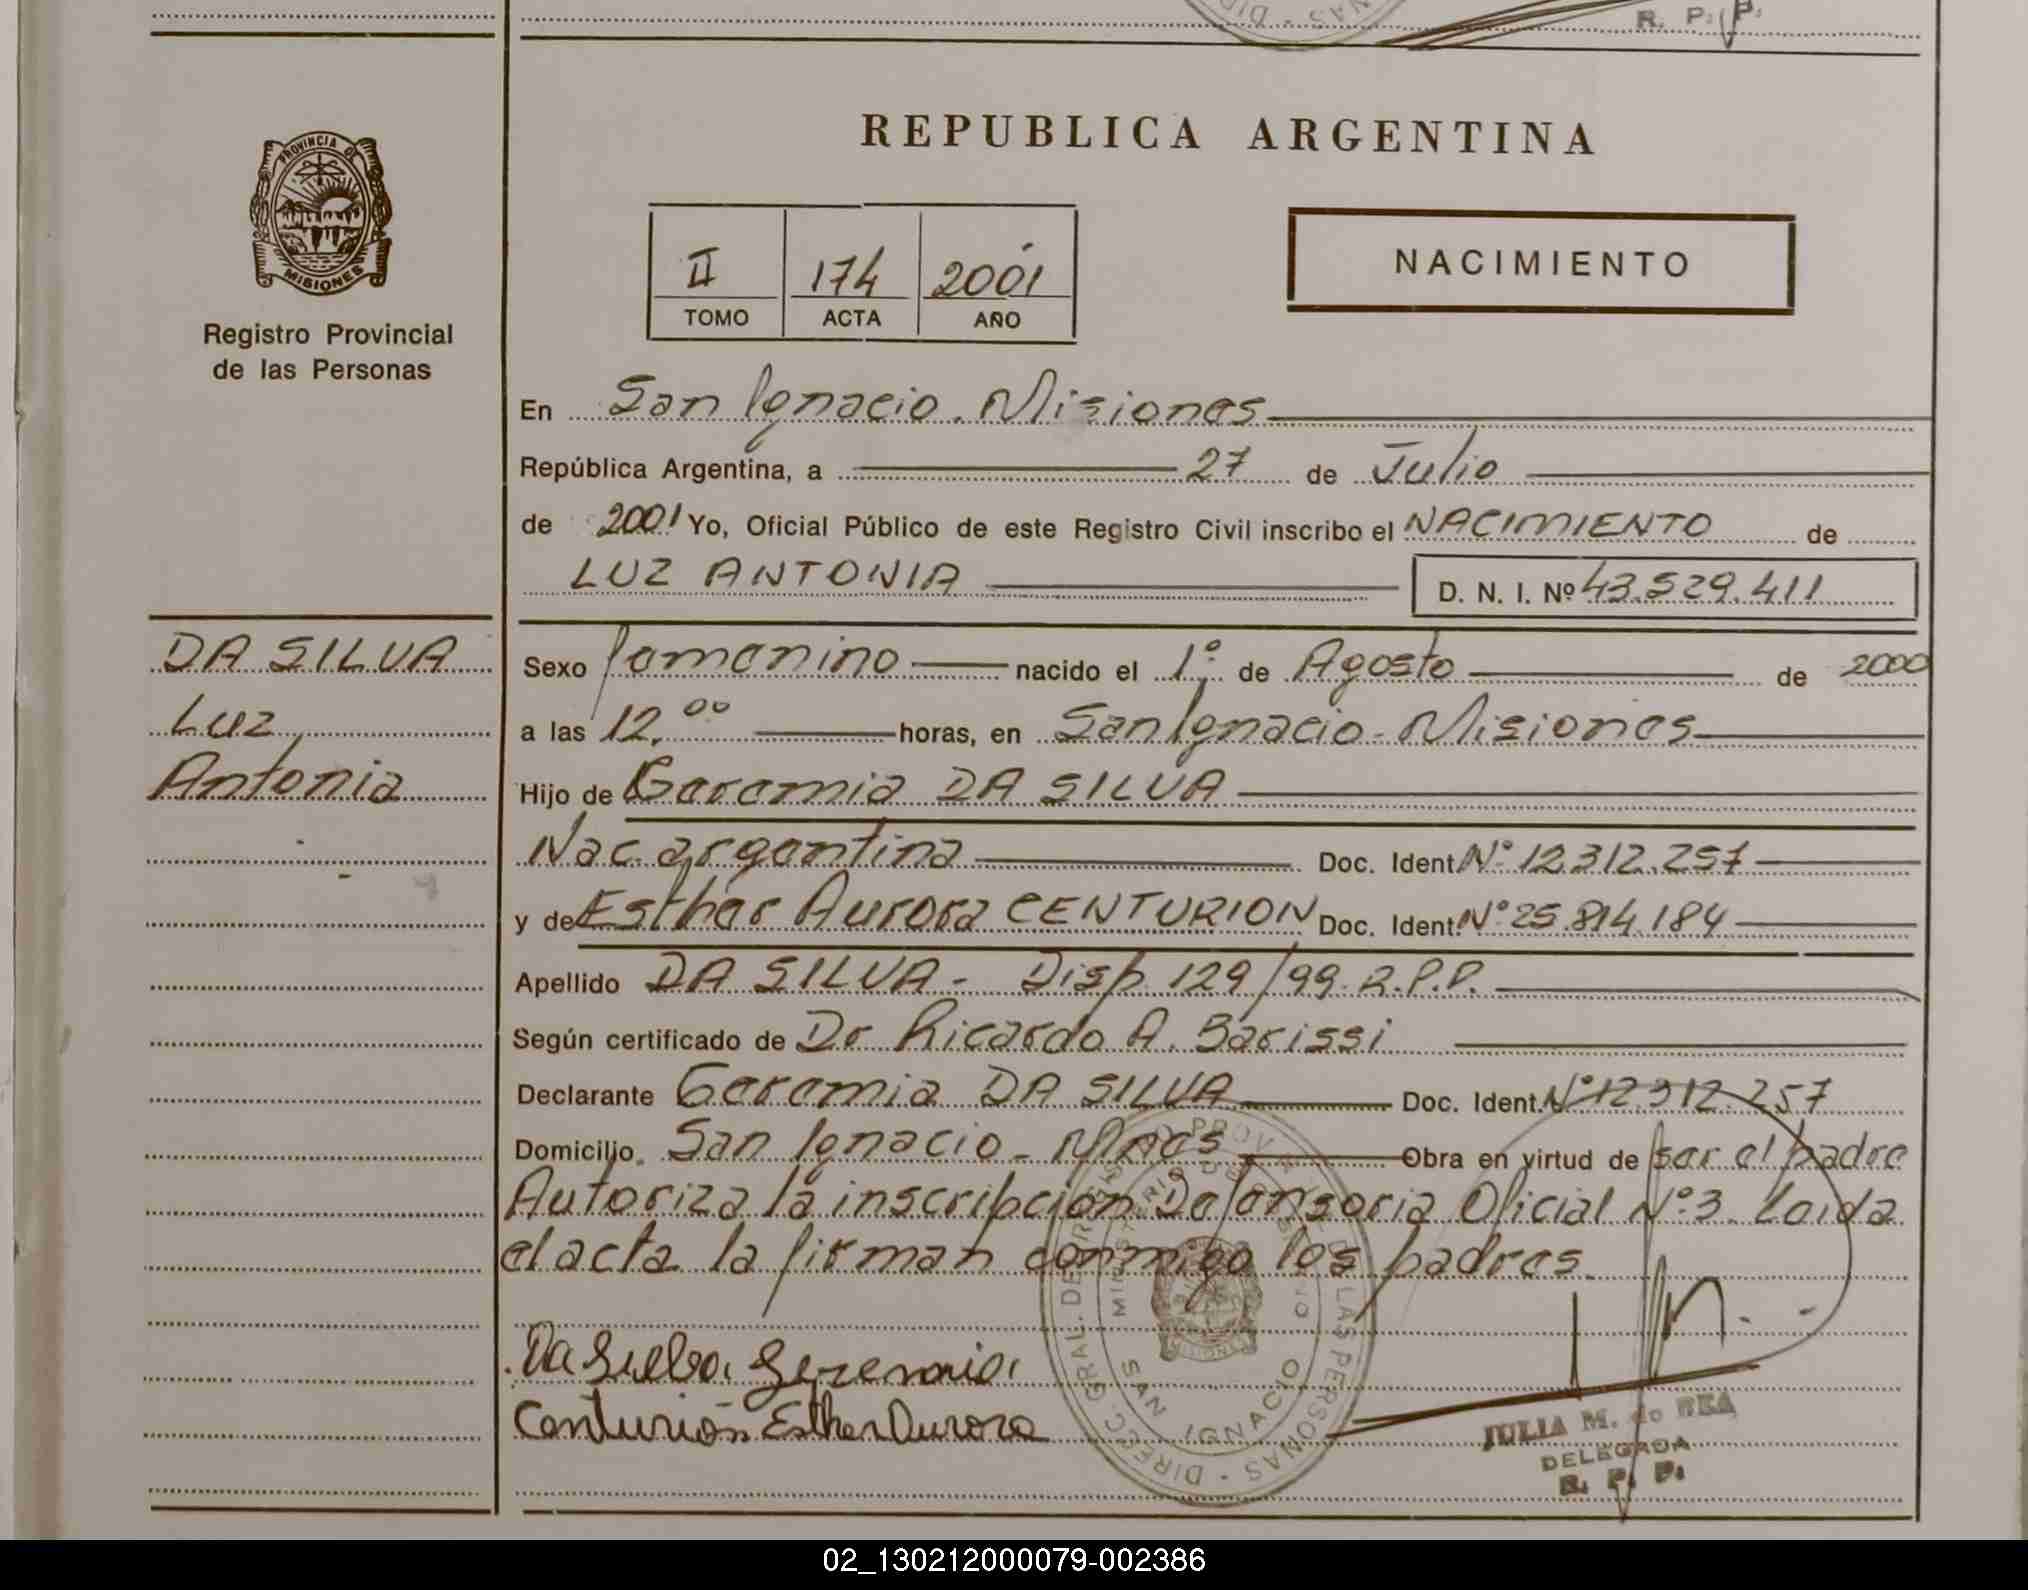 R. P. P.
PROVINCIA DE
MISIONES
Registro Provincial
de las Personas
REPUBLICA ARGENTINA
II 174 2001
TOMO ACTA AÑO
NACIMIENTO
En San Ignacio. Misiones
República Argentina, a 27 de Julio
de 2001 Yo, Oficial Público de este Registro Civil inscribo el NACIMIENTO de
LUZ ANTONIA D. N. I. Nº 43.529.411
DA SILVA
Luz
Antonia
Sexo femenino nacido el 1º de Agosto de 2000
a las 12.00 horas, en San Ignacio - Misiones
Hijo de Geremia DA SILVA
Nac. argentina Doc. Ident. Nº 12.312.257
y de Esther Aurora CENTURION Doc. Ident. Nº 25.814.184
Apellido DA SILVA - Disp. 129/99 R.P.P.
Según certificado de Dr Ricardo A. Barissi
Declarante Geremia DA SILVA Doc. Ident. Nº 12.312.257
Domicilio San Ignacio - Mnes Obra en virtud de ser el padre
Autoriza la inscripción Defensoria Oficial Nº 3. Leida
el acta la firman conmigo los padres.
Da Silva Geremia
Centurión Esther Aurora
DIRECC. GRAL. DE REG. PROV. DE LAS PERSONAS
MINISTERIO DE GOBIERNO
MISIONES
SAN IGNACIO
JULIA M. de REA
DELEGADA
R. P. P.
02_130212000079-002386